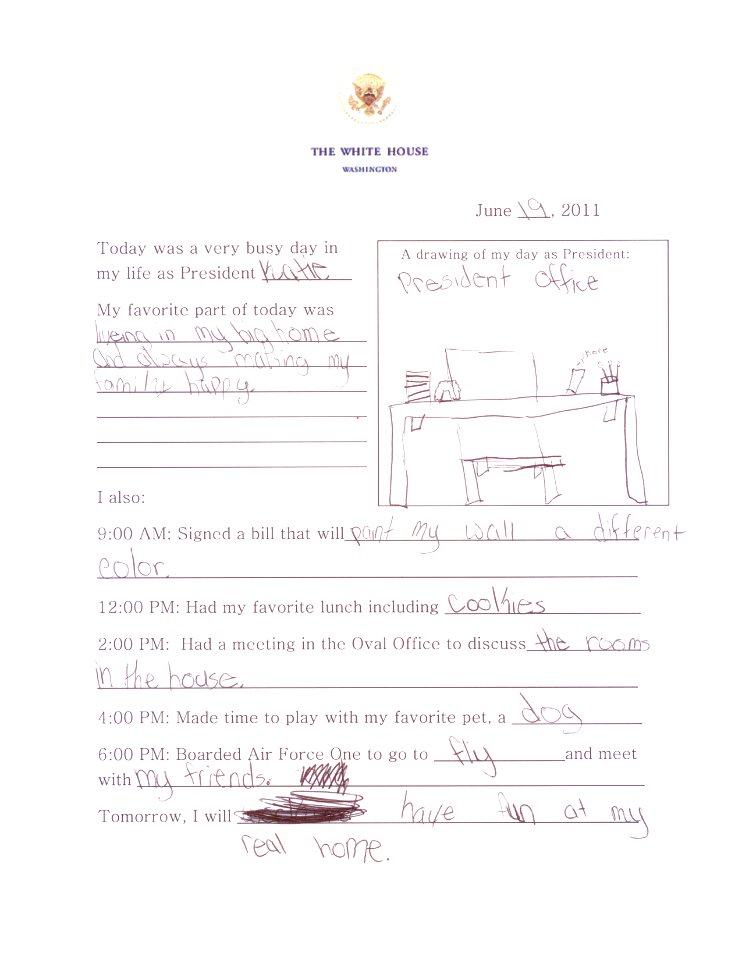 THE WHITE HOUSE
WASHINGTON
June 19, 2011
Today was a very busy day in
my life as President Katie
My favorite part of today was
lveing in my big home
and always making my
family happy.
A drawing of my day as President:
President office
I also:
9:00 AM: Signed a bill that will paint my wall a different
color.
12:00 PM: Had my favorite lunch including cookies
2:00 PM: Had a meeting in the Oval Office to discuss the rooms
in the house.
4:00 PM: Made time to play with my favorite pet, a dog
6:00 PM: Boarded Air Force One to go to fly and meet
with my friends.
Tomorrow, I will have fun at my
real home.